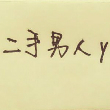 二手男人y